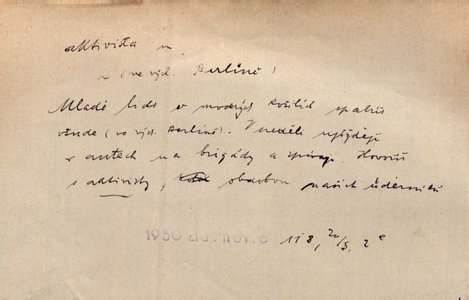 aktivista m.
~ (ve vých. Berlíně)
Mladé lidi v modrých košilích spatříš
všude (ve vých. Berlíně). V neděli vyjíždějí
v autech na brigády a zpívají. Hovoříš
s aktivisty, obdobou našich úderníků
1950 Lid. nov. 118, 20/5. 2 c